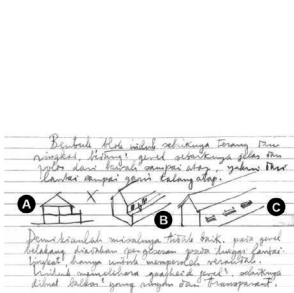 Bentuk blok untuk sebaiknya terang dan
ringkas, bidang² gevel sebaiknya jelas dan
polos dari bawah sampai atap, yakni dari
lantai sampai garis talang atap.
A
B
C
Demikianlah misalnya tidak baik, pada gevel
belakang diadakan pergeseran pada tinggi lantai
tingkat, hanya untuk memperoleh
Untuk memelihara gevel², sebaiknya
dibuat yang ringan dan transparant.